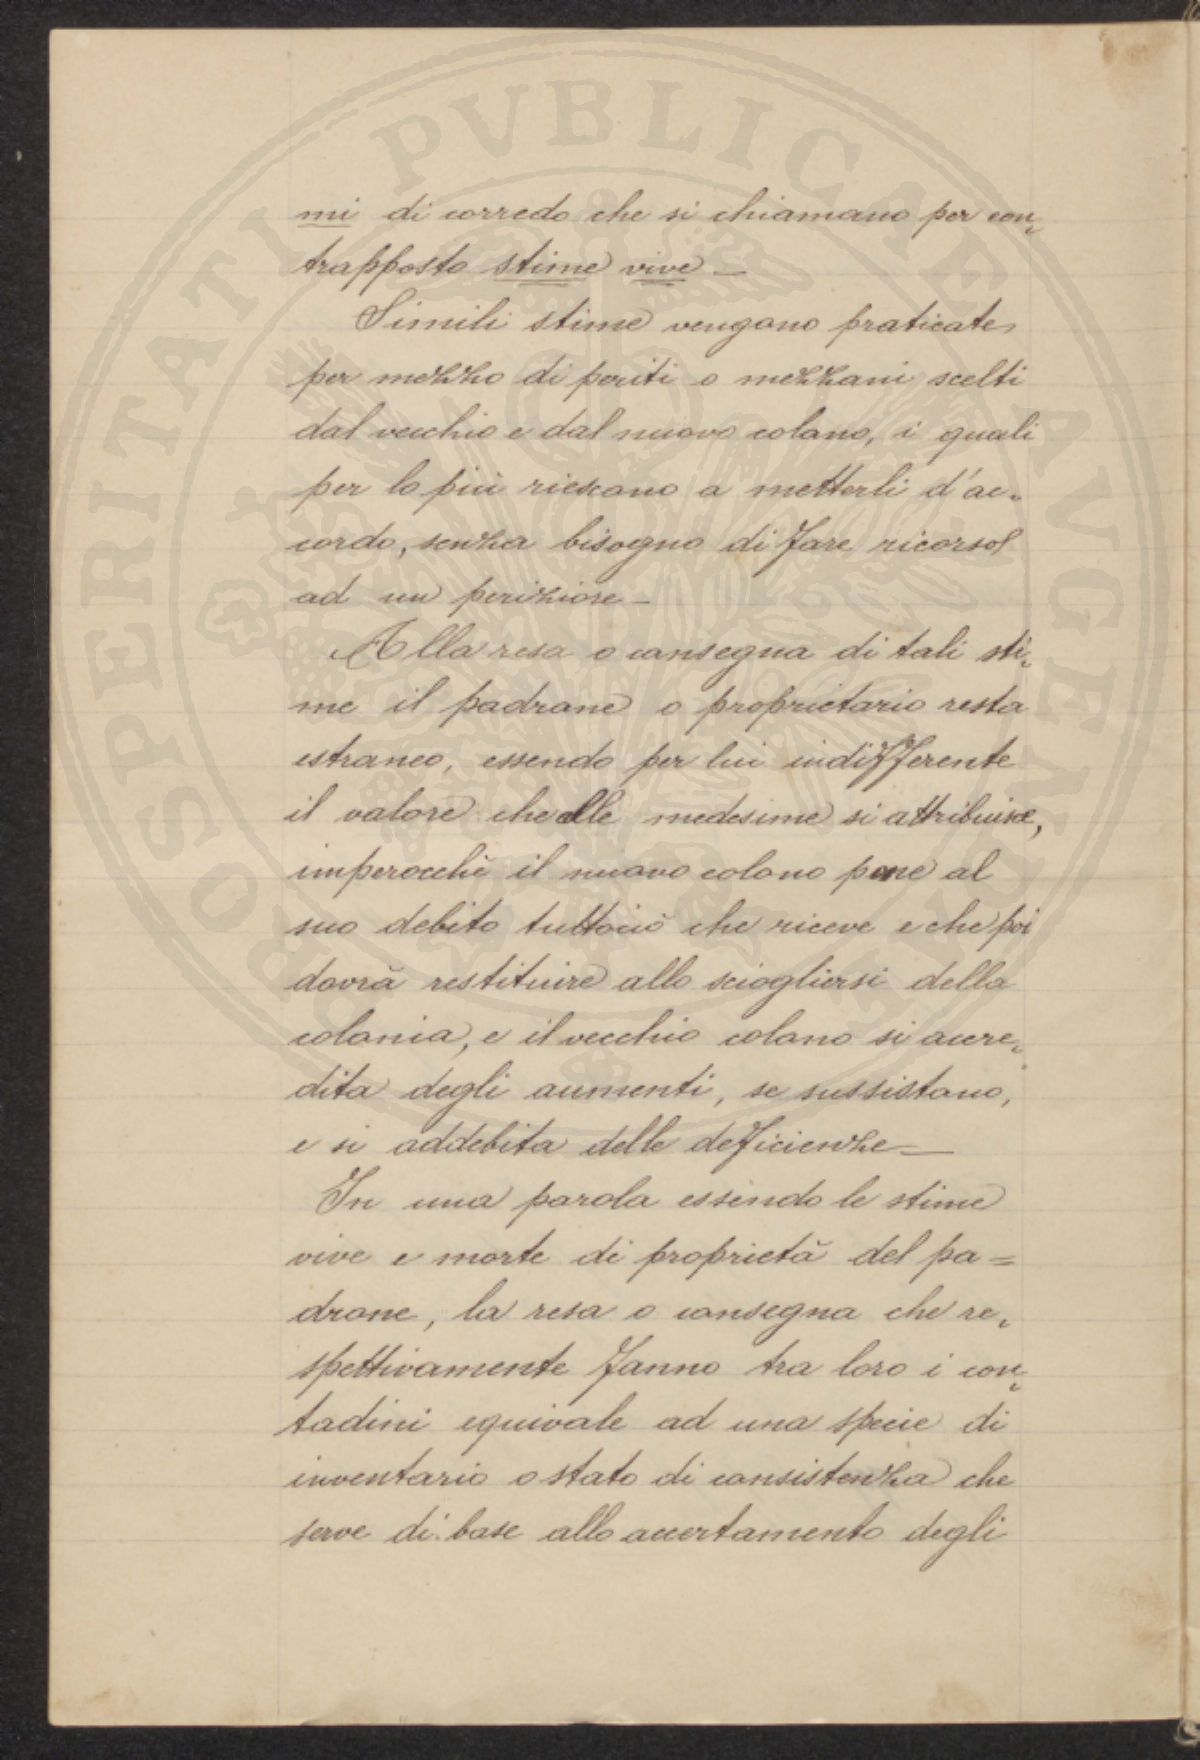 PROSPERITATI PVBLICAE AVGENDAE
mi di corredo che si chiamano per con-
trapposto stime vive —
Simili stime vengono praticate
per mezzo di periti o mezzani scelti
dal vecchio e dal nuovo colono, i quali
per lo più riescono a metterli d'ac-
cordo, senza bisogno di fare ricorso
ad un periziore —
Alla resa o consegna di tali sti-
me il padrone o proprietario resta
estraneo, essendo per lui indifferente
il valore che alle medesime si attribuisce,
imperocchè il nuovo colono pone al
suo debito tuttociò che riceve e che poi
dovrà restituire allo sciogliersi della
colonia, e il vecchio colono si accre-
dita degli aumenti, se sussistano,
e si addebita delle deficienze —
In una parola essendo le stime
vive e morte di proprietà del pa=
drone, la resa o consegna che re-
spettivamente fanno tra loro i con-
tadini equivale ad una specie di
inventario o stato di consistenza che
serve di base allo accertamento degli